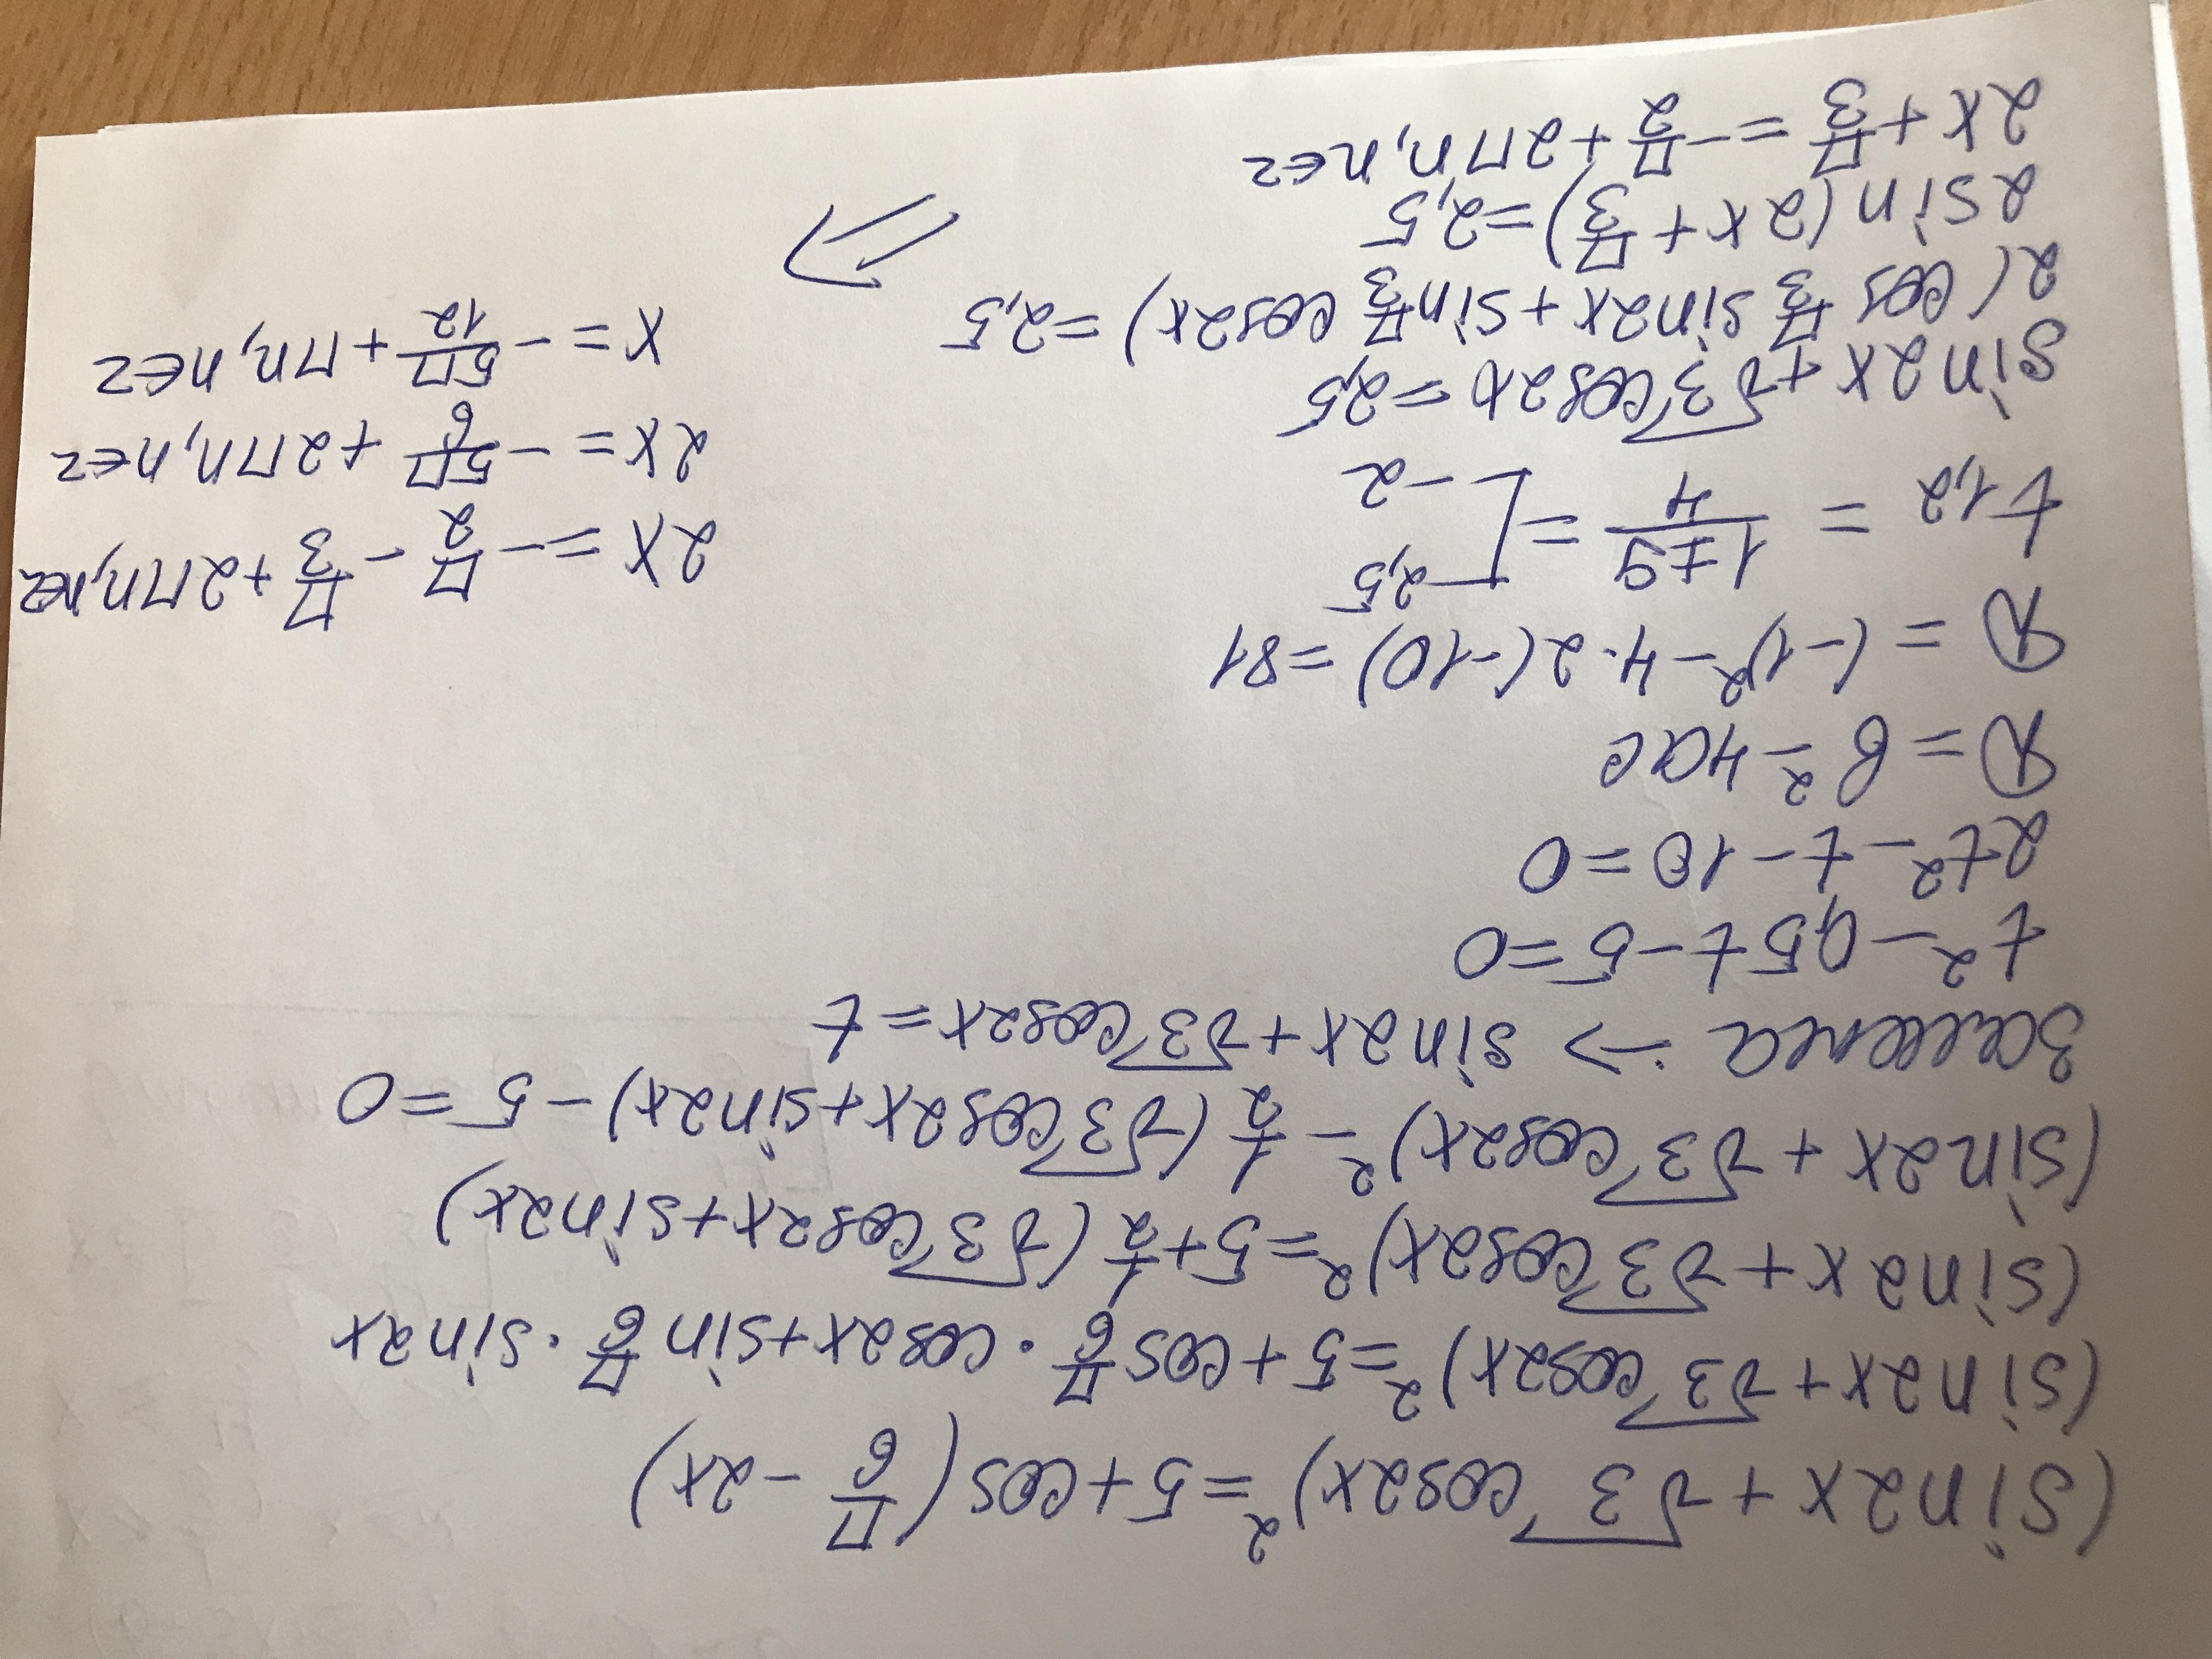 (sin2x + √3 cos2x)² = 5 + cos(π/6 - 2x)
(sin2x + √3 cos2x)² = 5 + cos π/6 · cos2x + sin π/6 · sin2x
(sin2x + √3 cos2x)² = 5 + 1/2 (√3 cos2x + sin2x)
(sin2x + √3 cos2x)² - 1/2 (√3 cos2x + sin2x) - 5 = 0
Замена :→ sin2x + √3 cos2x = t
t² - 0,5t - 5 = 0
2t² - t - 10 = 0
D = b² - 4ac
D = (-1)² - 4·2(-10) = 81
t1,2 = 1±9/4 = [2,5 -2
sin2x + √3 cos2x = 2,5
2(cos π/3 sin2x + sin π/3 cos2x) = 2,5
2sin(2x + π/3) = 2,5
2x + π/3 = -π/2 + 2πn, n∈z
⇒
2x = -π/2 - π/3 + 2πn, n∈z
2x = -5π/6 + 2πn, n∈z
x = -5π/12 + πn, n∈z